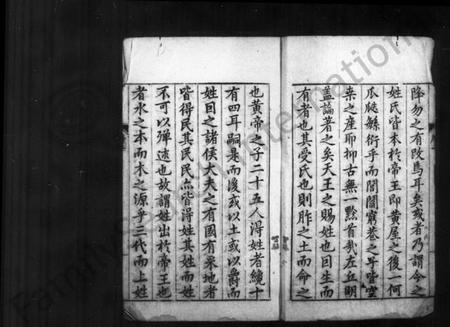 降勿之有改馬耳矣或者乃謂今之
姓氏皆本於帝王即黄屋之後何
瓜瓞緜衍乎而閭閻寶巷之耳皆空
桒之産耶抑古無一黔首我左丘明
蓋論著之矣天王之賜姓也因生而
有者也其受氏也則胙之土而命之
也黄帝之子二十五人得姓者纔十
有四耳嗣是而後或以土或以爵而
姓因之諸侯大夫之有國有采地者
皆得民其民民亦皆得姓其姓而姓
不可以殫述也故謂姓出於帝王也
者水之本而木之源乎三代而上姓
FamilySearch International